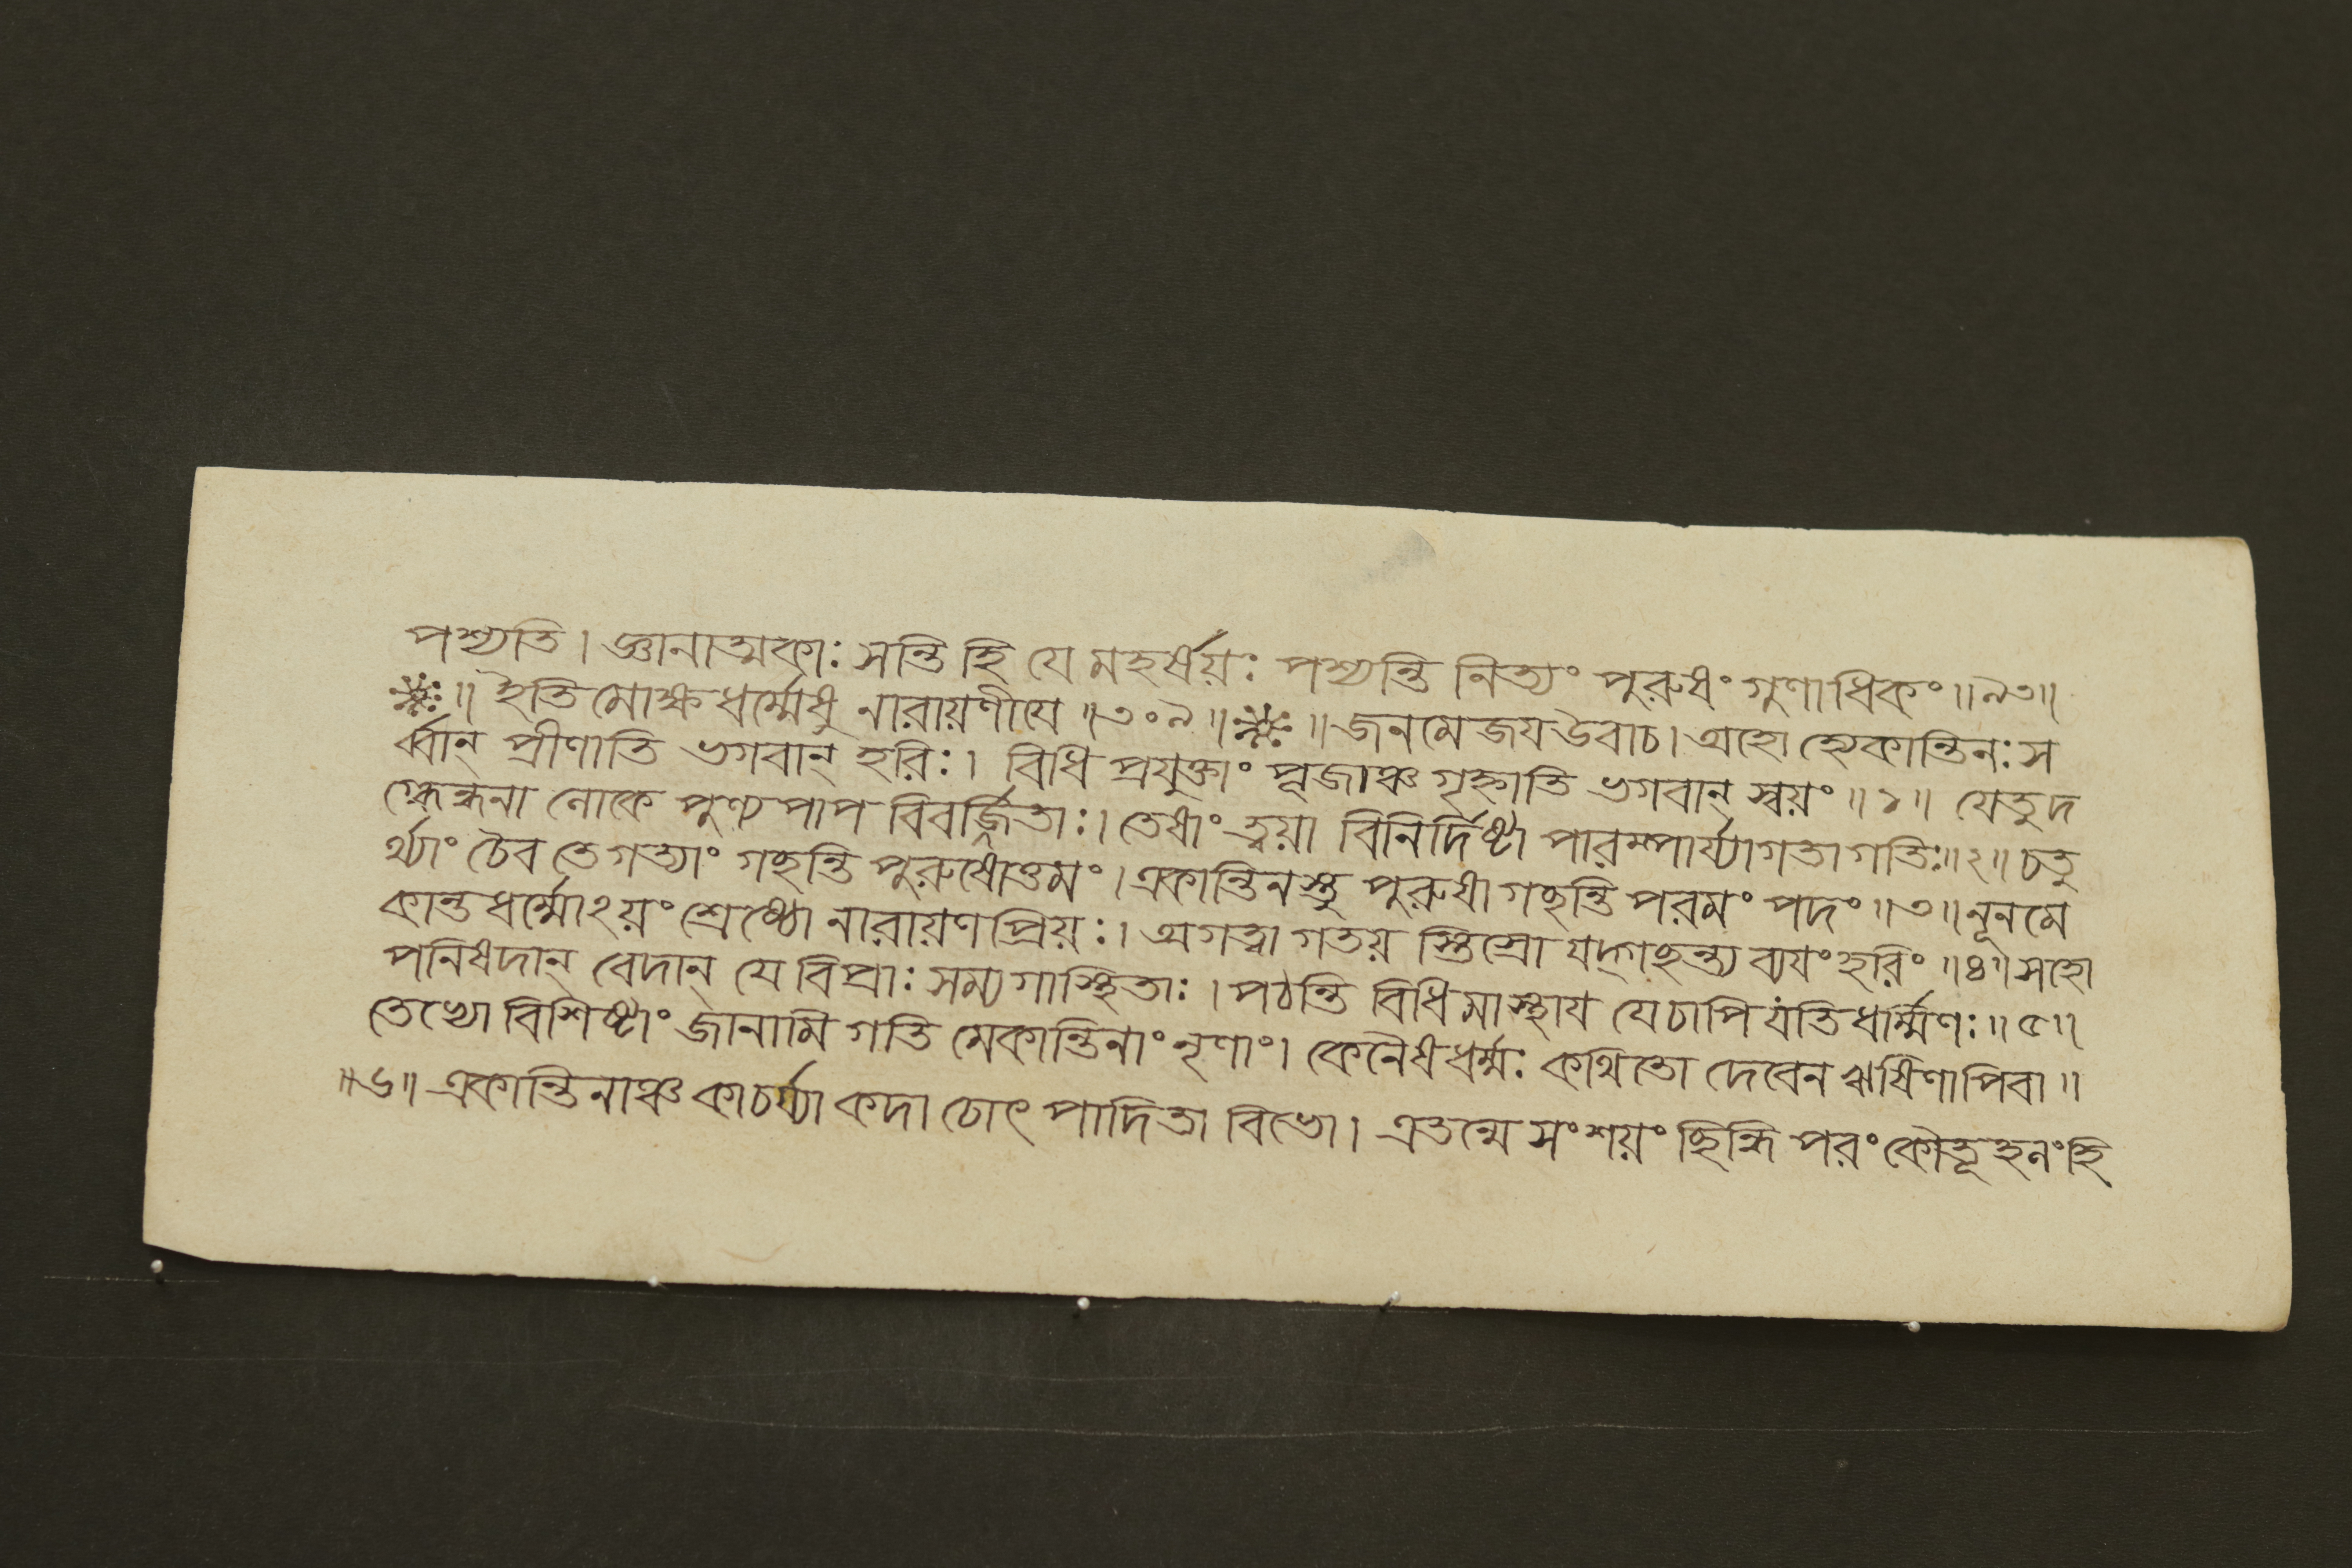 পশ্যতি। জ্ঞানাত্মকাঃ সন্তি হি যে মহর্ষয়ঃ পশ্যন্তি নিত্যং পুরুষং গুণাধিকং॥৯৩॥
॥ ইতি মোক্ষধর্ম্মেষু নারায়ণীযে॥৩০৯॥ ॥জনমেজয উবাচ। অহো হ্যেকান্তিনঃ স
র্ব্বান্ প্রীণাতি ভগবান্ হরিঃ। বিধি প্রযুক্তাং পূজাঞ্চ গৃহ্নাতি ভগবান্ স্বয়ং॥১॥ যেতু দ
গ্ধেন্ধনা লোকে পুণ্য পাপ বিবর্জ্জিতাঃ। তেষাং ত্বয়া বিনির্দিষ্টা পারম্পার্য্যাগতাগতিঃ॥২॥ চতু
র্থ্যাং চৈব তে গত্যাং গছন্তি পুরুষোত্তমং। একান্তিনস্তু পুরুষা গছন্তি পরমং পদং॥৩॥ নূনমে
কান্তধর্ম্মোঽয়ং শ্রেষ্ঠো নারায়ণপ্রিয়ঃ। অগত্বা গতয় স্তিস্রো যদ্গছন্ত্য ব্যযং হরিং॥৪॥ সহো
পনিষদান্ বেদান্ যে বিপ্রাঃ সম্যগাস্থিতাঃ। পঠন্তি বিধিমাস্থায যে চাপি যতিধর্ম্মিণঃ॥৫॥
তেভ্যো বিশিষ্টাং জানামি গতি মেকান্তিনাং নৃণাং। কেনৈষ ধর্ম্মঃ কথিতো দেবেন ঋষিণাপিবা॥
॥৬॥ একান্তিনাঞ্চ কাচর্য্যা কদা চোৎপাদিতা বিভো। এতন্মে সংশয়ং ছিন্ধি পরং কৌতূহলং হি